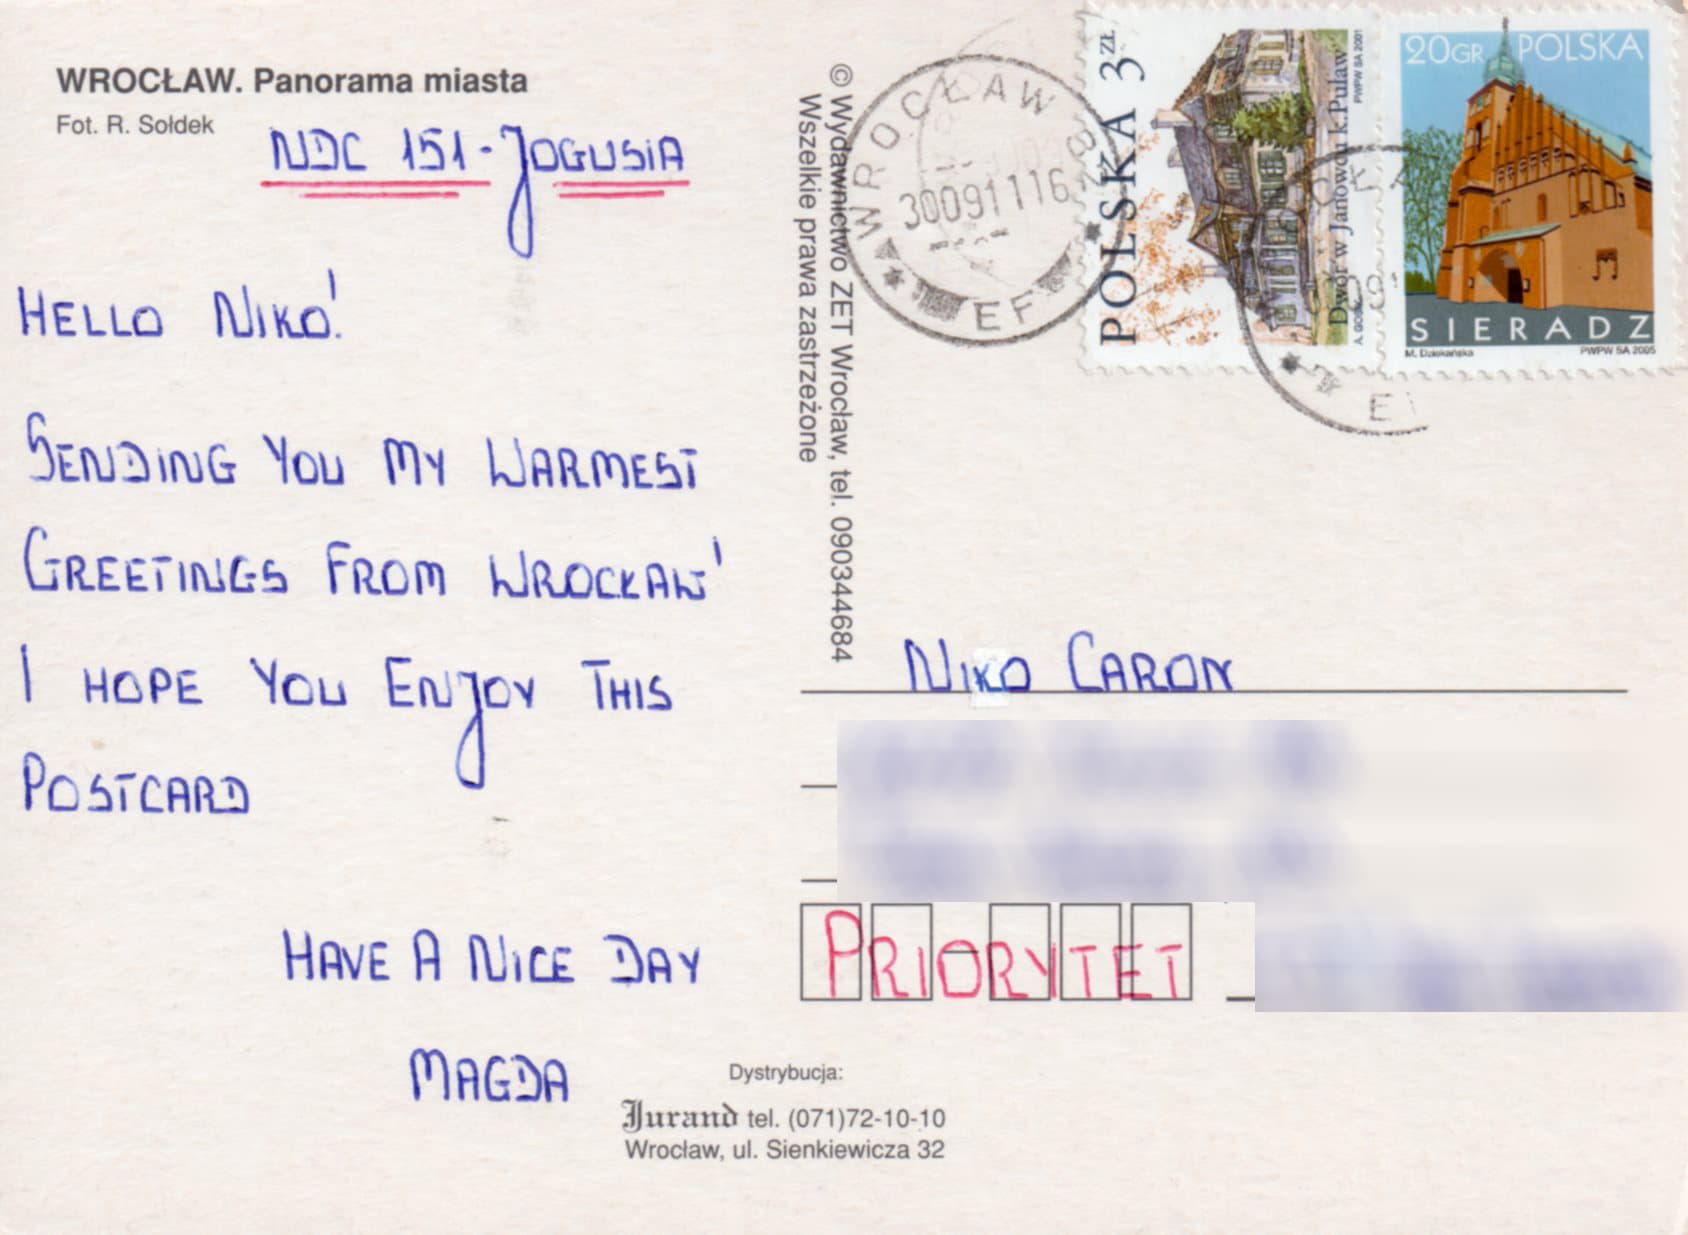 WROCŁAW. Panorama miasta
Fot. R. Sołdek
NDC 151-JOGUSIA
HELLO NIKO!
SENDING YOU MY WARMEST
GREETINGS FROM WROCŁAW!
I HOPE YOU ENJOY THIS
POSTCARD
HAVE A NICE DAY
MAGDA
© Wydawnictwo ZET Wrocław, tel. 090344684
Wszelkie prawa zastrzeżone
WROCŁAW
30091116
EF
POLSKA 3ZŁ
Dwór w Janowcu k.Puław
PWPW SA 2001
20GR POLSKA
SIERADZ
PWPW SA 2005
NIKO CARON
PRIORYTET
Dystrybucja:
Jurand tel. (071)72-10-10
Wrocław, ul. Sienkiewicza 32